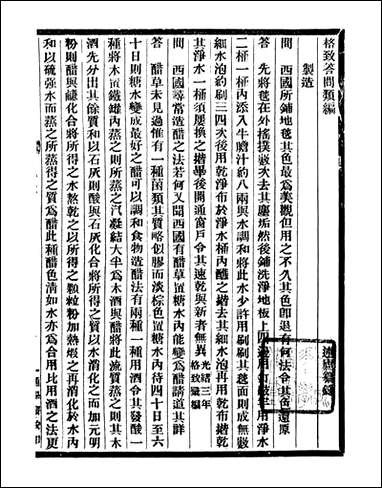 格致答問類編
製造
問　西國所鋪地毯其色最爲美觀但用之不久其色卽退有何法令其色還原
答　先將毯在外搖撲數次去其塵垢然後鋪洗淨地板上四邊用釘嚴牢用淨水
二桶一桶內添入牛膽汁約八兩與水調和將此水少許用刷刷其毯面則成無數
細水泡約刷三四次後用乾淨布於淨水桶內醮之揩去其細水泡再用乾布揩乾
其淨水一桶須屢換之揩畢後開通窗戶令其速乾與新者無異光緒三年格致彙編
問　西國尋常造醋之法若何又聞西國有醋草置糖水內能變爲醋請道其詳
答　醋草未見過惟有一種菌類其質略似膠而淡棕色置糖水內待四十日至六
十日則糖水變成最好之醋可以調和食物造醋法有兩種一種用酒令其發酸一
種將木置鐵罐內蒸之則所蒸之汽凝結大半爲木酒與醋將此流質蒸之則其木
酒先分出其餘質和以石灰則醋與石灰化合將所得之質以水消化之而加元明
粉則醋與鹼化合將所得之水熬乾之以所得之顆粒粉加熱煅之再消化於水內
和以硫强水而蒸之所蒸得之質爲醋此種醋色淸如水亦爲合用比用酒之法更